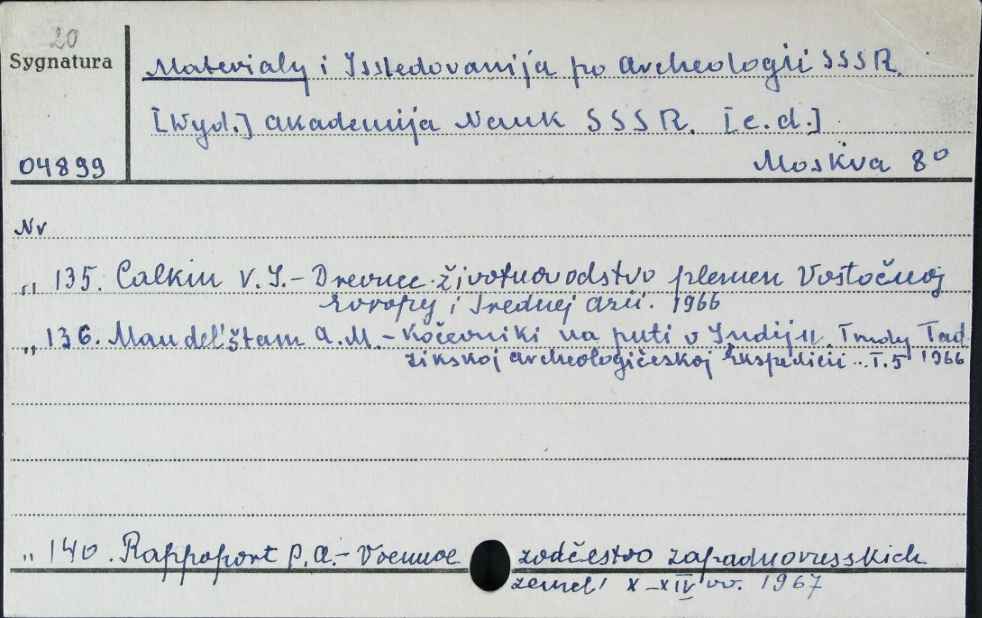 20
Sygnatura
Materialy i Issledovanija po Archeologii SSSR.
[Wyd.] Akademija Nauk SSSR. [c.d.]
04899
Moskva 8°
Nr
„ 135. Calkin V. I. - Drevnee životnovodstvo plemen Vostočnoj
Evropy i Srednej Azii. 1966
„ 136. Mandel'štam A.M. - Kočevniki na puti v Indiju. Trudy Tad
žikskoj Archeologičeskoj Ekspedicii... T.5 1966
„ 140. Rappoport P.A. - Voennoe zodčestvo zapadnorusskich
zemel' X-XIV vv. 1967